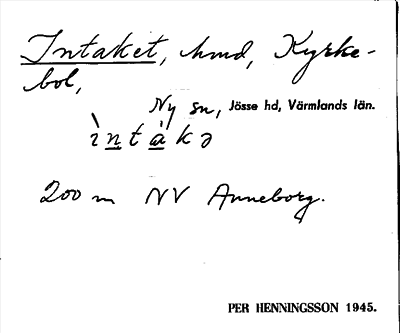 Intaket, hmd, Kyrke-
bol,
Ny sn, Jösse hd, Värmlands län.
ìntàkə
200 m NV Anneborg.
PER HENNINGSSON 1945.